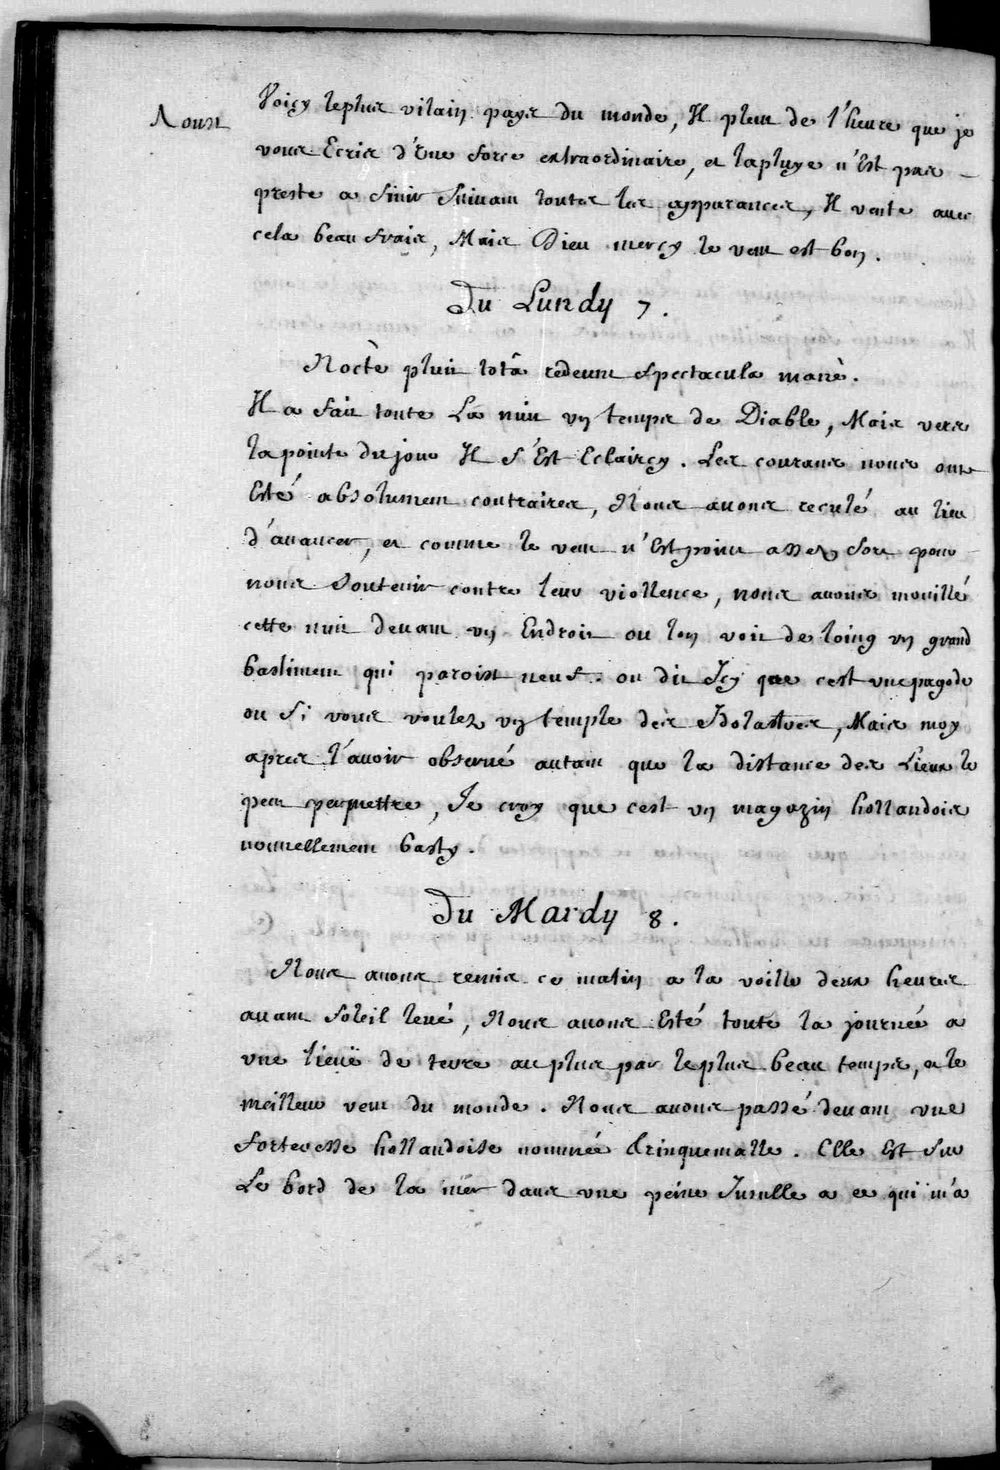 Aoust
Voicy le plus vilain pays du monde, Il pleut de l'heure que je
vous Ecris d'Une force extraordinaire, et la pluye n'Est pas
preste a finir suivant toutes les apparances, Il vente avec
cela beau frais, Mais Dieu mercy le vent est bon.
Du Lundy 7.
Nocte pluit totâ redeunt spectacula manè.
Il a fait toute La nuit un temps de Diable, Mais vers
la pointe du jour Il s'Est Eclaircy. Les courans nous ont
Esté absolument contraires, Nous avons reculé au lieu
d'auancer, et comme le vent n'Est point assez fort pour
nous soutenir contre leur viollence, nous avons mouillé
cette nuit devant un Endroit ou lon voit de loing un grand
bastiment qui paroist neuf. on dit Icy que cest une pagode
ou si vous voulez un temple des Idolastres, Mais moy
apres l'avoir observé autant que la distance des Lieux le
peut permettre, Je croy que cest un magazin hollandois
nouvellement basty.
Du Mardy 8.
Nous avons remis ce matin a la voille deux heures
avant soleil levé, Nous avons Esté toute la journée a
une lieuë de terre au plus par le plus beau temps, et le
meilleur vent du monde. Nous avons passé devant une
forteresse hollandoise nommée Trinquemalle. Elle Est sur
Le bord de la mer dans une peine Insulle a ce qui m'a